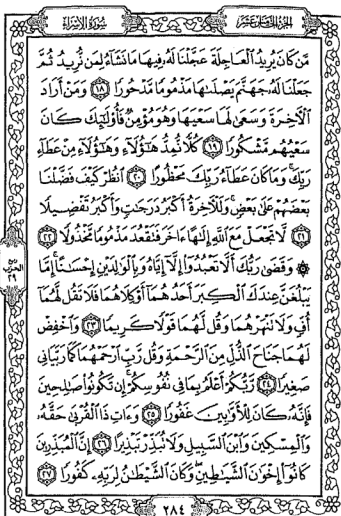 الجزء الخامس عشر
سورة الإسراء
مَّن كَانَ يُرِيدُ ٱلْعَاجِلَةَ عَجَّلْنَا لَهُۥ فِيهَا مَا نَشَآءُ لِمَن نُّرِيدُ ثُمَّ
جَعَلْنَا لَهُۥ جَهَنَّمَ يَصْلَىٰهَا مَذْمُومًا مَّدْحُورًا ١٨ وَمَنْ أَرَادَ
ٱلْأَخِرَةَ وَسَعَىٰ لَهَا سَعْيَهَا وَهُوَ مُؤْمِنٌ فَأُو۟لَـٰٓئِكَ كَانَ
سَعْيُهُم مَّشْكُورًا ١٩ كُلًّا نُّمِدُّ هَـٰٓؤُلَآءِ وَهَـٰٓؤُلَآءِ مِنْ عَطَآءِ
رَبِّكَ وَمَا كَانَ عَطَآءُ رَبِّكَ مَحْظُورًا ٢٠ ٱنظُرْ كَيْفَ فَضَّلْنَا
بَعْضَهُمْ عَلَىٰ بَعْضٍ وَلَلْأَخِرَةُ أَكْبَرُ دَرَجَـٰتٍ وَأَكْبَرُ تَفْضِيلًا
٢١ لَّا تَجْعَلْ مَعَ ٱللَّهِ إِلَـٰهًا ءَاخَرَ فَتَقْعُدَ مَذْمُومًا مَّخْذُولًا ٢٢
۞ وَقَضَىٰ رَبُّكَ أَلَّا تَعْبُدُوٓا۟ إِلَّآ إِيَّاهُ وَبِٱلْوَٰلِدَيْنِ إِحْسَـٰنًا إِمَّا
يَبْلُغَنَّ عِندَكَ ٱلْكِبَرَ أَحَدُهُمَآ أَوْ كِلَاهُمَا فَلَا تَقُل لَّهُمَآ
أُفٍّ وَلَا تَنْهَرْهُمَا وَقُل لَّهُمَا قَوْلًا كَرِيمًا ٢٣ وَٱخْفِضْ
لَهُمَا جَنَاحَ ٱلذُّلِّ مِنَ ٱلرَّحْمَةِ وَقُل رَّبِّ ٱرْحَمْهُمَا كَمَا رَبَّيَانِى
صَغِيرًا ٢٤ رَّبُّكُمْ أَعْلَمُ بِمَا فِى نُفُوسِكُمْ إِن تَكُونُوا۟ صَـٰلِحِينَ
فَإِنَّهُۥ كَانَ لِلْأَوَّٰبِينَ غَفُورًا ٢٥ وَءَاتِ ذَا ٱلْقُرْبَىٰ حَقَّهُۥ
وَٱلْمِسْكِينَ وَٱبْنَ ٱلسَّبِيلِ وَلَا تُبَذِّرْ تَبْذِيرًا ٢٦ إِنَّ ٱلْمُبَذِّرِينَ
كَانُوٓا۟ إِخْوَٰنَ ٱلشَّيَـٰطِينِ وَكَانَ ٱلشَّيْطَـٰنُ لِرَبِّهِۦ كَفُورًا ٢٧
٢٨٤